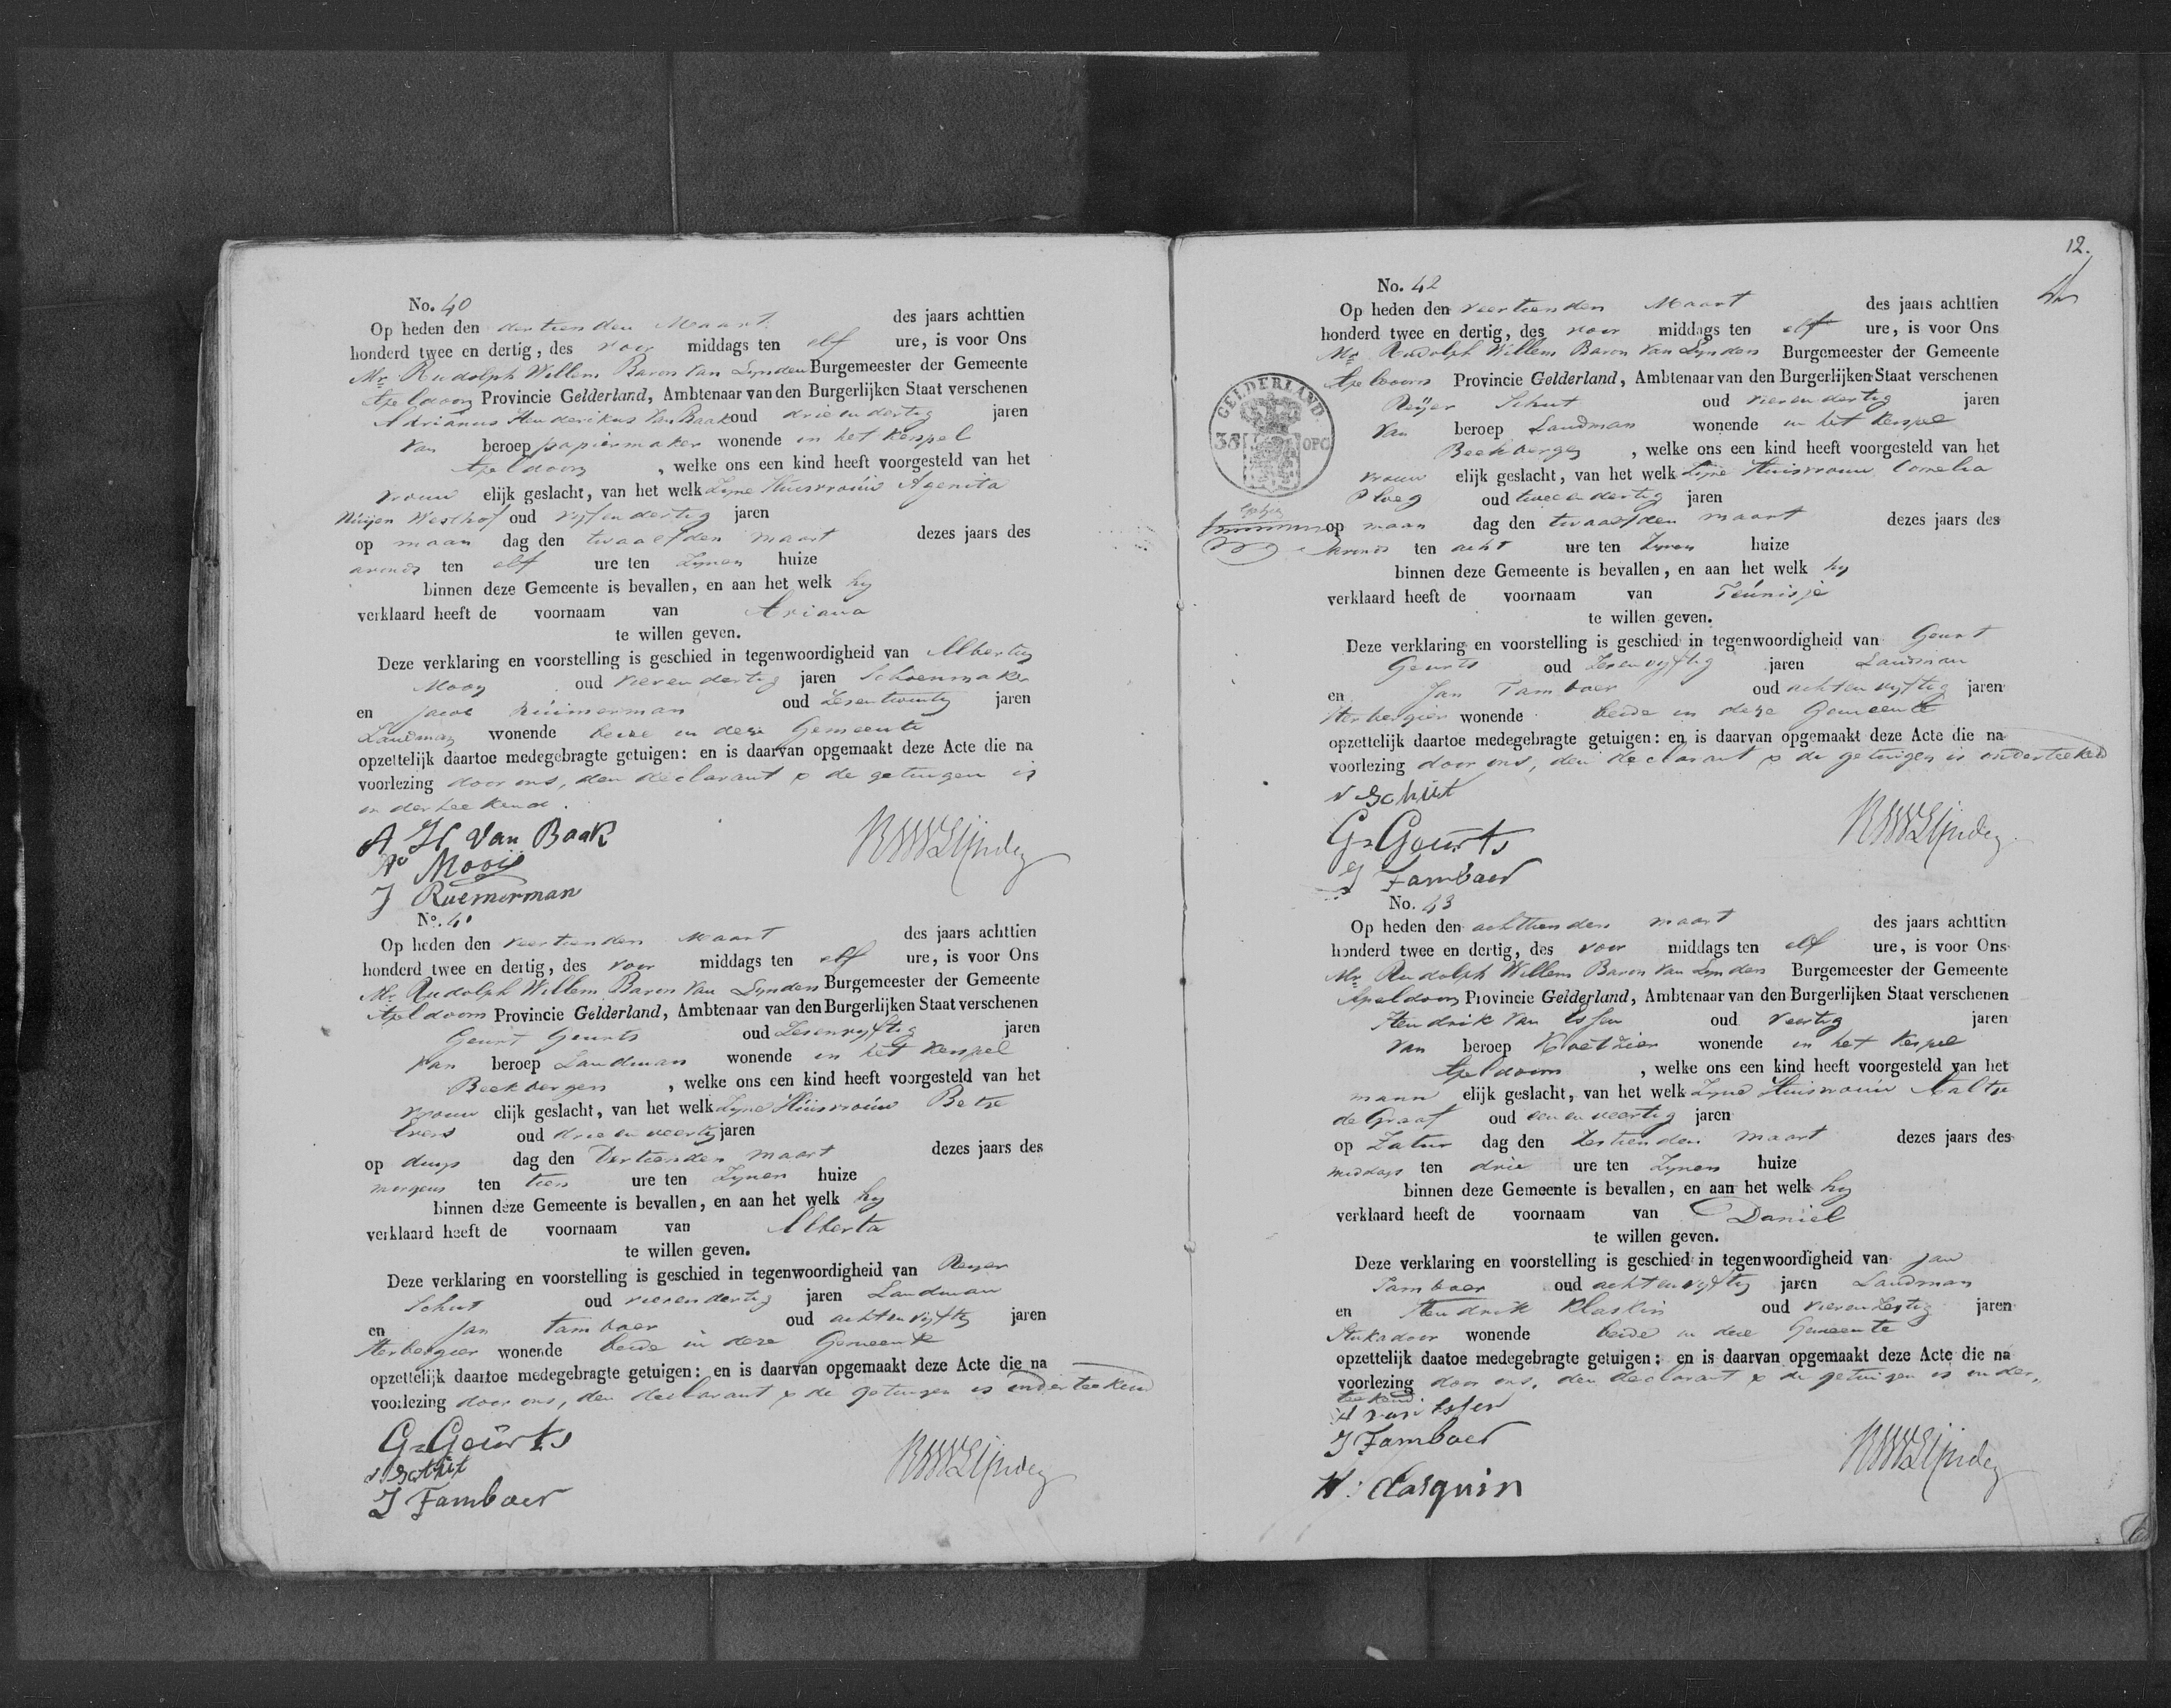 No. 40
Op heden den dertienden Maart des jaars achttien
honderd twee en dertig, des voor middags ten elf ure, is voor Ons
Mr. Rudolph Willem Baron Van Lynden Burgemeester der Gemeente
Apeldoorn Provincie Gelderland, Ambtenaar van den Burgerlijken Staat verschenen
Adrianus Henderikus Van Baak oud drie en dertig jaren
van beroep papiermaker wonende in het Kerspel
Apeldoorn, welke ons een kind heeft voorgesteld van het
vrouw elijk geslacht, van het welk Zyne Huisvrouw Agenita
Westhof oud vyf en dertig jaren
op maan dag den twaalfden maart dezes jaars des
avonds ten elf ure ten Zynen huize
binnen deze Gemeente is bevallen, en aan het welk hy
verklaard heeft de voornaam van Ariana
te willen geven.
Deze verklaring en voorstelling is geschied in tegenwoordigheid van Albertus
Mooy oud vierendertig jaren Schoenmaker
en Jacob Ruimerman oud Zesentwintig jaren
Landman wonende beide in deze Gemeente
opzettelijk daartoe medegebragte getuigen: en is daarvan opgemaakt deze Acte die na
voorlezing door ons, den declarant & de getuigen is
onderteekend.
A H Van Baak
As Mooij
J Ruemerman
RWVLijnden
No. 41
Op heden den veertienden Maart des jaars achttien
honderd twee en dertig, des voor middags ten elf ure, is voor Ons
Mr. Rudolph Willem Baron Van Lynden Burgemeester der Gemeente
Apeldoorn Provincie Gelderland, Ambtenaar van den Burgerlijken Staat verschenen
Geurt Geurts oud Zesenvyftig jaren
van beroep Landman wonende in het Kerspel
Beekbergen, welke ons een kind heeft voorgesteld van het
vrouw elijk geslacht, van het welk Zyne Huisvrouw Betje
Evers oud drie en veertig jaren
op dings dag den Dertienden maart dezes jaars des
morgens ten tien ure ten Zynen huize
binnen deze Gemeente is bevallen, en aan het welk hy
verklaard heeft de voornaam van Alberta
te willen geven.
Deze verklaring en voorstelling is geschied in tegenwoordigheid van Reyer
Schut oud vierendertig jaren Landman
en Jan Tamboer oud achtenvyftig jaren
Herbergier wonende beide in deze Gemeente
opzettelijk daartoe medegebragte getuigen: en is daarvan opgemaakt deze Acte die na
voorlezing door ons, den declarant & de getuigen is onderteekend
G=Geurts
r Schut
J Tamboer
RWVLijnden
12.
No. 42
Op heden den veertienden Maart des jaars achttien
honderd twee en dertig, des voor middags ten elf ure, is voor Ons
Mr. Rudolph Willem Baron Van Lynden Burgemeester der Gemeente
Apeldoorn Provincie Gelderland, Ambtenaar van den Burgerlijken Staat verschenen
GELDERLAND
38 OPC
Reijer Schut oud vierendertig jaren
van beroep Landman wonende in het Kerspel
Beekbergen, welke ons een kind heeft voorgesteld van het
vrouw elijk geslacht, van het welk Zijne Huisvrouw Cornelia
Ploeg oud twee en dertig jaren
op maan dag den twaalfden maart dezes jaars des
avonds ten acht ure ten Zynen huize
binnen deze Gemeente is bevallen, en aan het welk hy
verklaard heeft de voornaam van Teunisje
te willen geven.
Deze verklaring en voorstelling is geschied in tegenwoordigheid van Geurt
Geurts oud Zesenvyftig jaren Landman
en Jan Tamboer oud achtenvyftig jaren
Herbergier wonende beide in deze Gemeente
opzettelijk daartoe medegebragte getuigen: en is daarvan opgemaakt deze Acte die na
voorlezing door ons, den declarant & de getuigen is onderteekend
r Schut
G=Geurts
J Tamboer
RWVLijnden
No. 43
Op heden den achttienden maart des jaars achttien
honderd twee en dertig, des voor middags ten elf ure, is voor Ons
Mr. Rudolph Willem Baron Van Lynden Burgemeester der Gemeente
Apeldoorn Provincie Gelderland, Ambtenaar van den Burgerlijken Staat verschenen
Hendrik Van Essen oud veertig jaren
van beroep Koetzier wonende in het Kerspel
Apeldoorn, welke ons een kind heeft voorgesteld van het
mann elijk geslacht, van het welk Zyne Huisvrouw Aaltje
de Graaf oud een en veertig jaren
op Zatur dag den Zestienden maart dezes jaars des
middags ten drie ure ten Zynen huize
binnen deze Gemeente is bevallen, en aan het welk hy
verklaard heeft de voornaam van Daniel
te willen geven.
Deze verklaring en voorstelling is geschied in tegenwoordigheid van Jan
Tamboer oud achtenvyftig jaren Landman
en Hendrik Klaskin oud vierenzestig jaren
Stukadoor wonende beide in deze Gemeente
opzettelijk daatoe medegebragte getuigen: en is daarvan opgemaakt deze Acte die na
voorlezing door ons, den declarant & de getuigen is onder,
teekend
H van Essen
J Tamboer
H: Clasquin
RWVLijnden